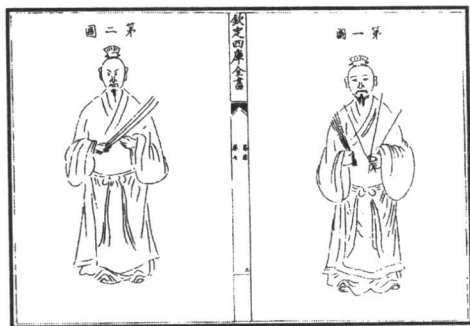 第一圖
欽定四庫全書
第二圖